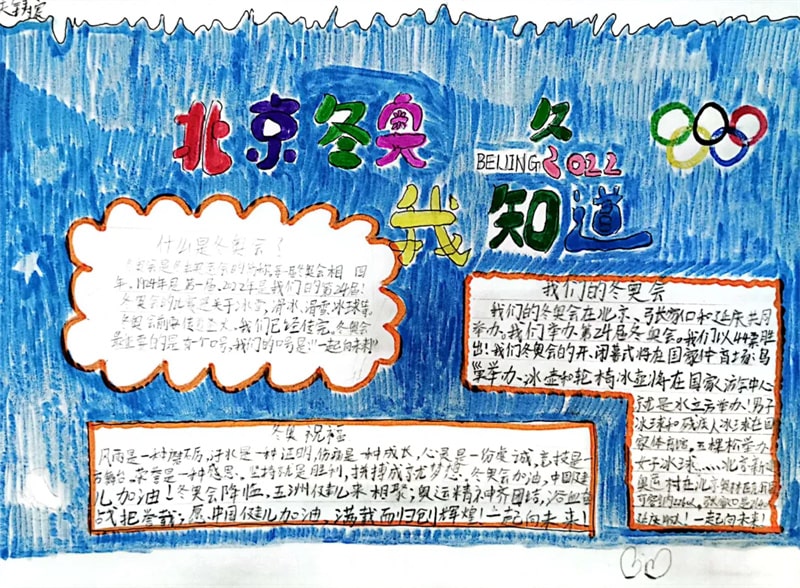 北京冬奥
久
BEIJING 2022
我知道
什么是冬奥会？
年,1924年是第一届,2022年是我们的第24届!
冬奥会的比赛是关于冰雪,滑冰,滑雪,冰球等,
冬奥会前每位意义,我们已经传完,冬奥会
最重要的是有个口号,我们的口号是:"一起向未来"
我们的冬奥会
我们的冬奥会在北京、张家口和延庆共同
举办,我们举办第24届冬奥会。我们以44票胜
出!我们冬奥会的开、闭幕式将在国家体育场鸟
巢举办、冰壶和轮椅冰壶将在国家游泳中心
就是水立方举办!男子
冰球和残疾人冰球在国
家体育馆,五棵松举办
女子冰球……北京新冬
一起向未来!
冬奥祝福
风雨是一种磨历,汗水是一种证明,伤痛是一种成长,心灵是一份虔诚,竞技是一
荣誉是一种感恩。坚持就是胜利,拼搏成就梦想。冬奥会加油,中国健
儿加油!冬奥会降临,五洲健儿来相聚;奥运精神齐团结,浴血奋
战把誉载;愿中国健儿加油,满载而归创辉煌!一起向未来!